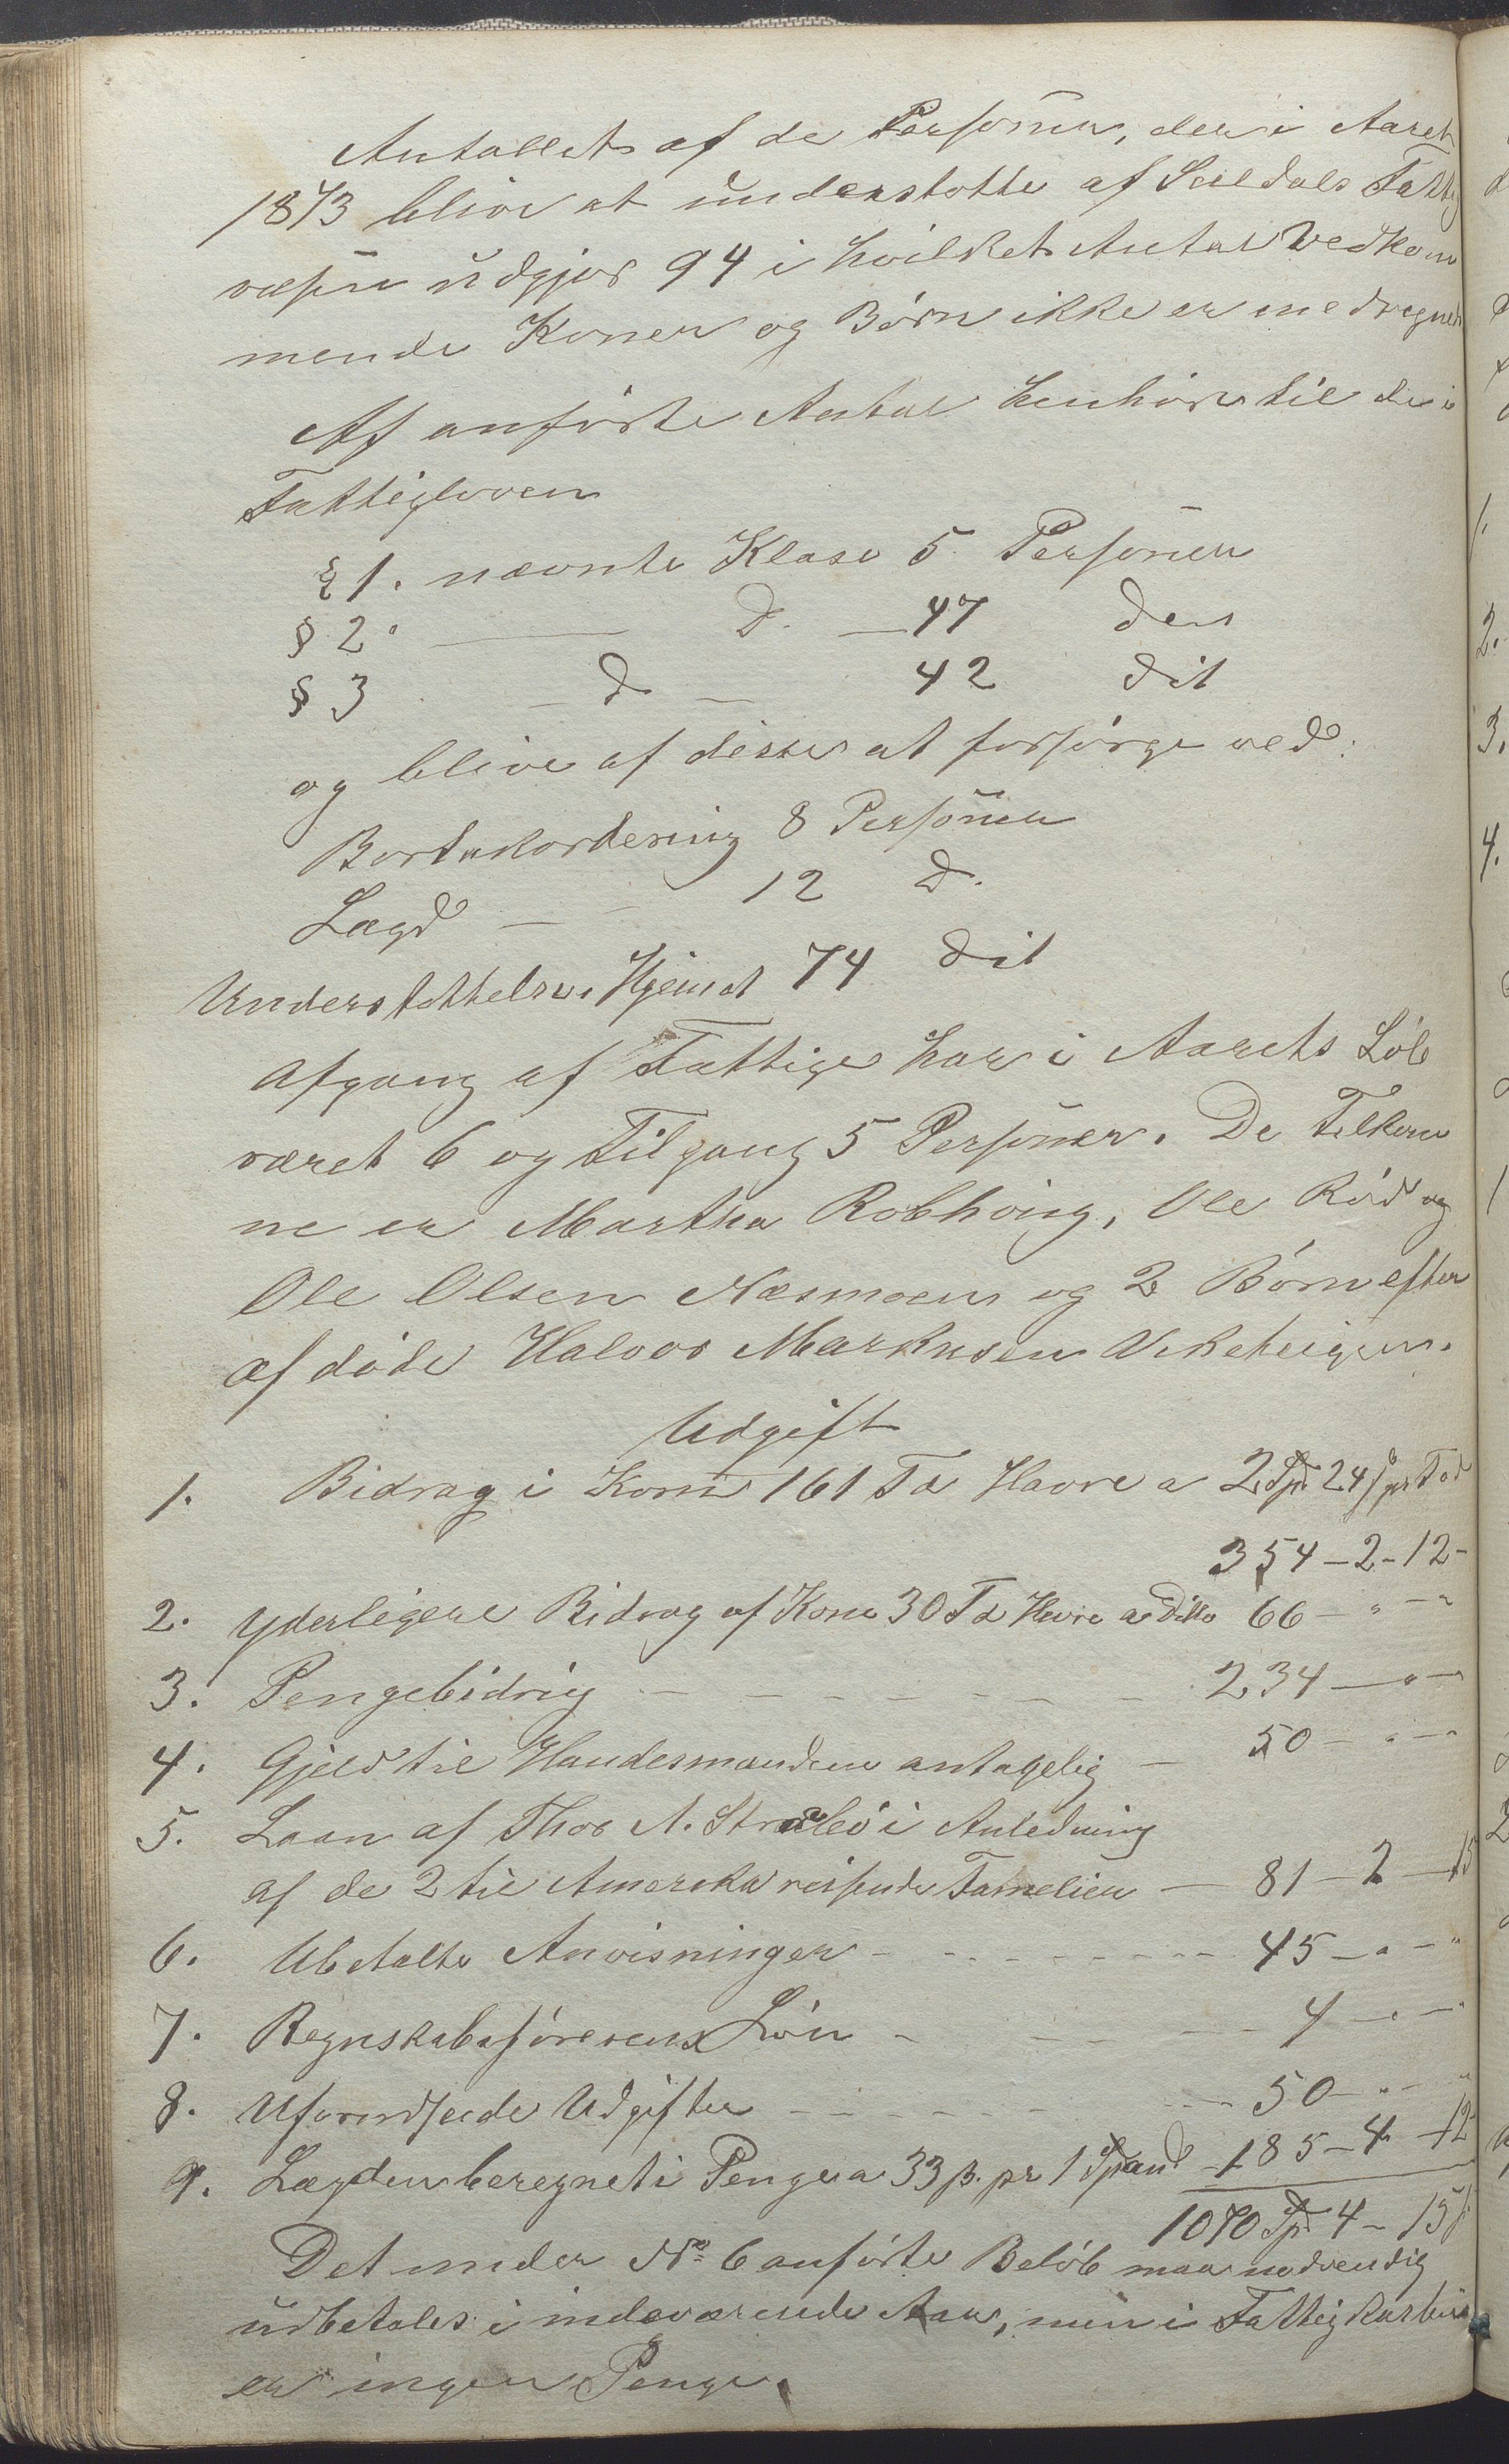 Antallet af de Personer, der i Aaret
1873 blive at understøtte af Seildals Fattig
væsen udgjør 94 i hvilket Antal vedkom
mende Koner og Børn ikke er medregnet
Af anførte Antal henhøre til de i
Fattigloven
§ 1. nævnte Klase 5 Personer
§ 2. — D. — 47 den
§ 3 — D — 42 dit
og blive af disse at forsørge ved:
Bortakordering 8 Personer
Lægd — 12 D.
Understøttelse i Hjemet 74 dit
Afgang af Fattige har i Aarets Løb
været 6 og Tilgang 5 Personer. De Tilkom
ne er Martha Robhøing, Ole Rød og
Ole Olsen Næsmoen og 2 Børn efter
afdøde Halvor Markusen
Udgift
1. Bidrag i Korn 161 Td Havre a 2 Spd 24 ß pr Td
354 - 2 - 12 -
2. Yderligere Bidrag af Korn 30 Td Havre a Ditto 66 - " - "
3. Pengebidrag - - - - - - 234 - " -
4. Gjeld til Handesmanden antagelig - 50 - " - "
5. Laan af Thor A. i Anledning
af de 2 til Amerika reisende Familier - 81 - 2 - 15
6. Ubetalte Anvisninger - - - - - - 45 - " - "
7. Regnskabsførerens Løn - - - - 4 - " - "
8. Uforudseede Udgifter - - - - - - 50 - " - "
9. Lægden beregnet i Penge a 33 ß. pr 1 Spand - 185 - 4 - 12
1070 Spd 4 - 15 ß
Det under No 6 anførte Beløb maa nødvendig
udbetales i indeværende Aar, men i Fattigkassen
er ingen Penge.